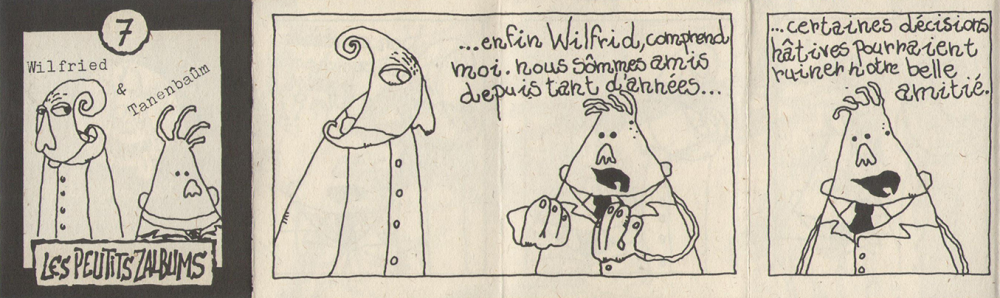 7
Wilfried
&
Tanenbaûm
LES PEUTITS ZALBUMS
...enfin Wilfrid, comprend
moi. nous sômmes amis
depuis tant d'années...
...certaines décisions
hâtives pourraient
ruiner notre belle
amitié.